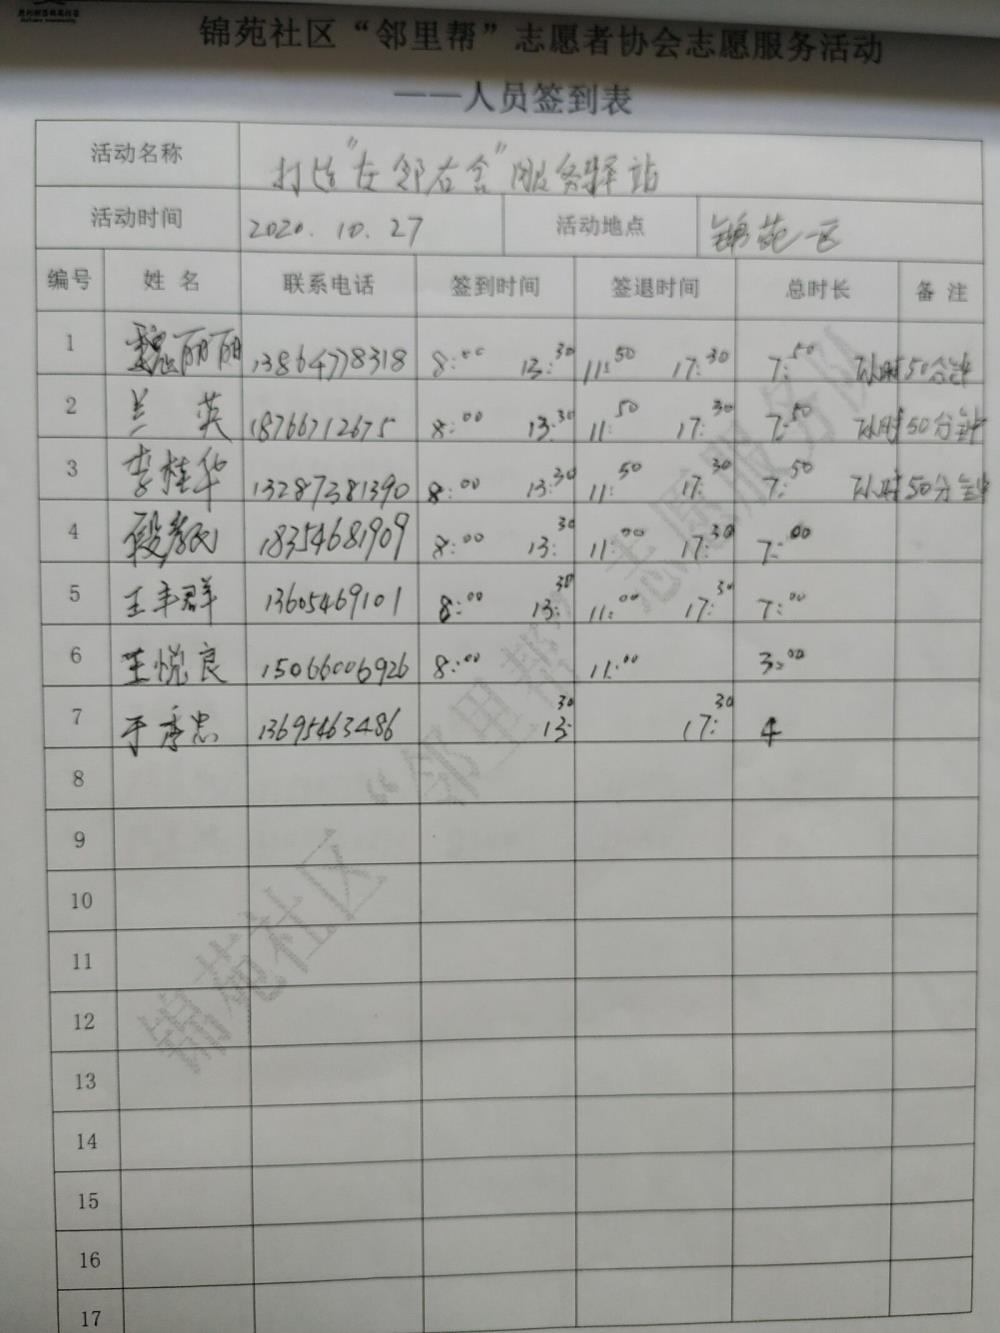 锦苑社区“邻里帮”志愿者协会志愿服务活动
——人员签到表
活动名称 打造“左邻右舍”服务驿站
活动时间 2020.10.27 活动地点 锦苑一区
编号 姓名 联系电话 签到时间 签退时间 总时长 备注
1 魏丽丽 13864778318 8:00 13:30 11:50 17:30 7:50 7小时50分钟
2 兰英 18766712675 8:00 13:30 11:50 17:30 7:50 7小时50分钟
3 李桂华 13287381390 8:00 13:30 11:50 17:30 7:50 7小时50分钟
4 段 18354681909 8:00 13:30 11:00 17:30 7:00
5 王丰群 13605469101 8:00 13:30 11:00 17:30 7:00
6 王悦良 15066006926 8:00 11:00 3:00
7 于秀忠 13695463486 13:30 17:30 4
8
9
10
11
12
13
14
15
16
17
锦苑社区“邻里帮”志愿服务队